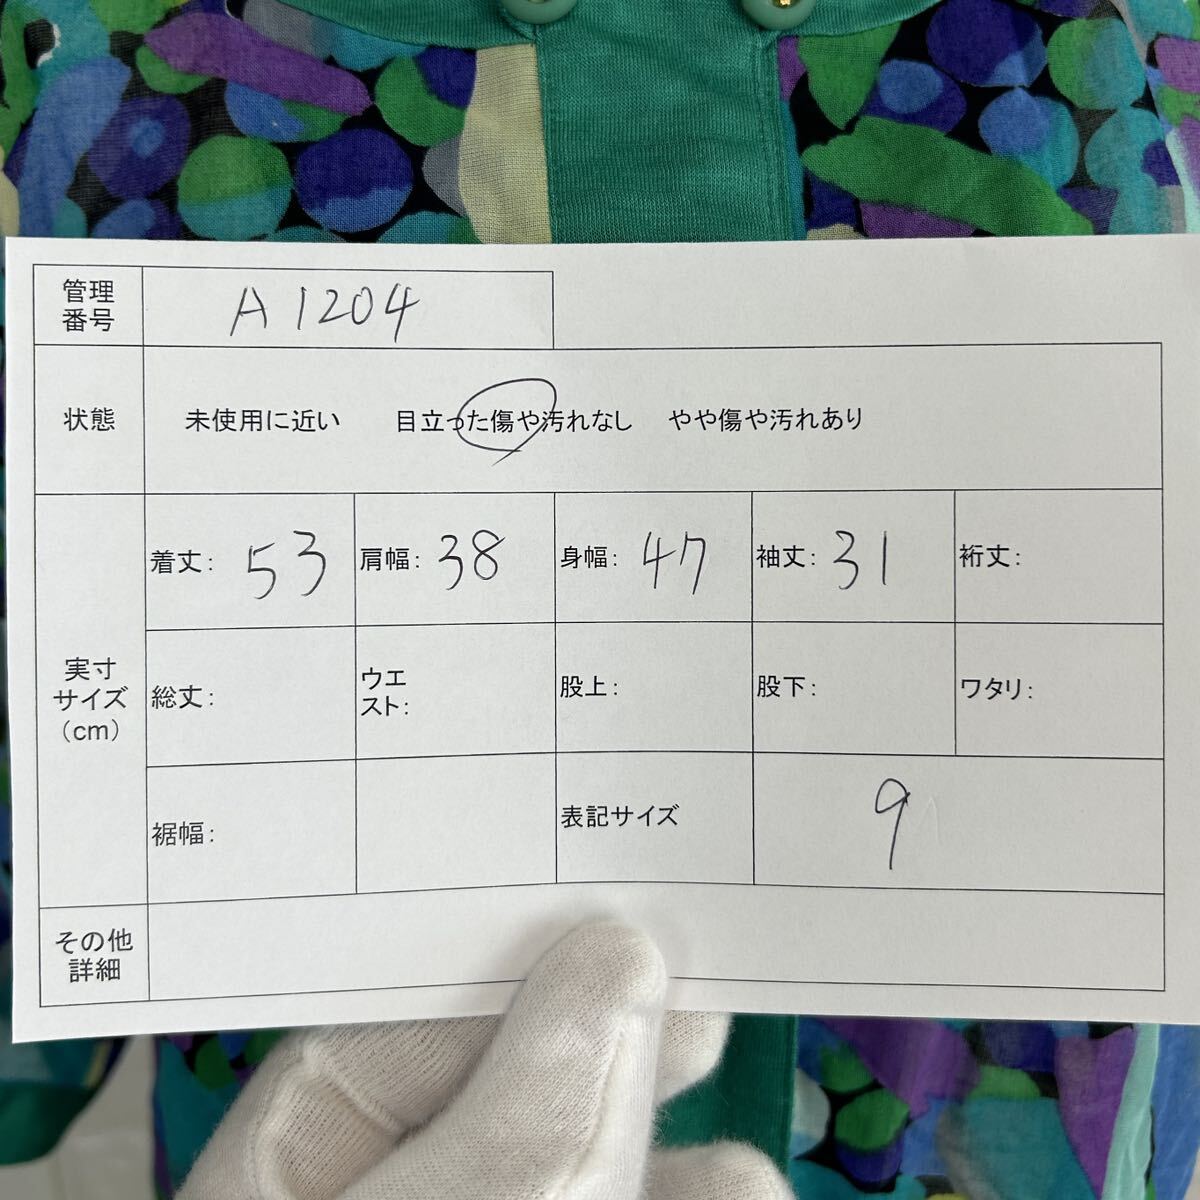 管理
番号
A1204
状態
未使用に近い 目立った傷や汚れなし やや傷や汚れあり
実寸
サイズ
(cm)
着丈: 53 肩幅: 38 身幅: 47 袖丈: 31 裄丈:
総丈: ウエ
スト: 股上: 股下: ワタリ:
裾幅: 表記サイズ 9
その他
詳細